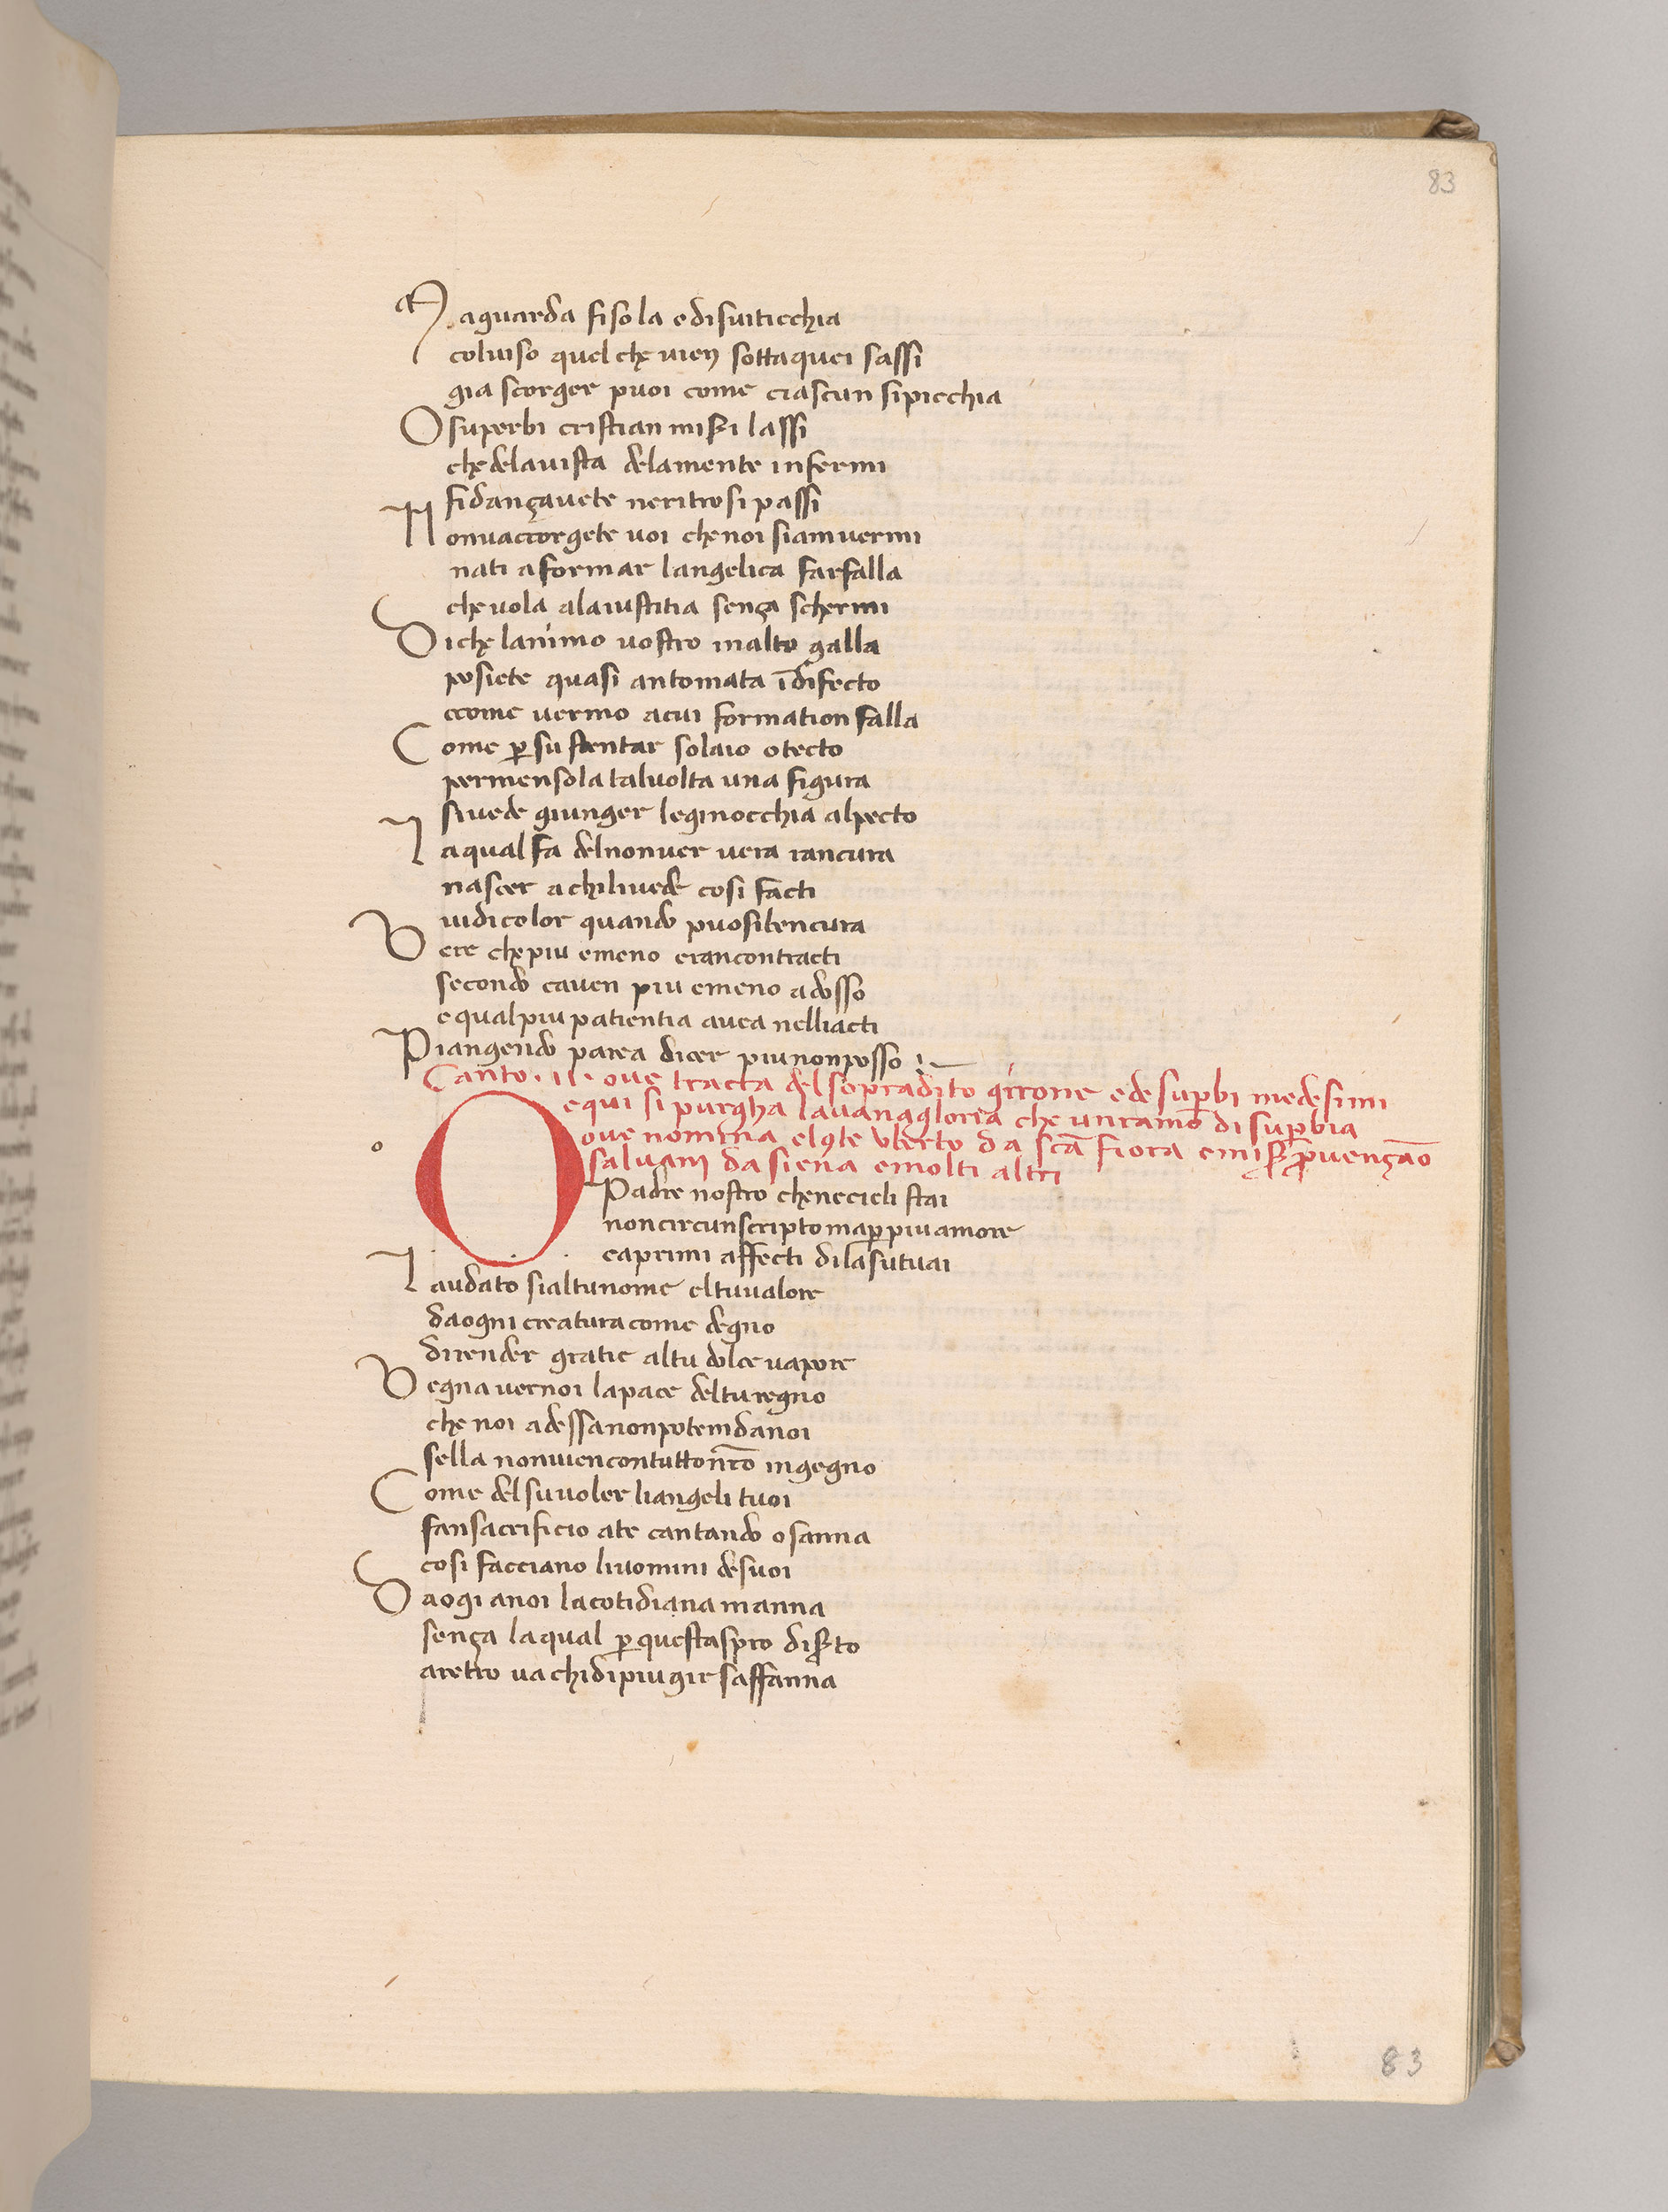 83
Maguarda fiso la e disuiticchia
col uiso quel che uien sotta quei sassi
gia scorger puoi come ciascun si picchia
O superbi cristian miseri lassi
che dela uista dela mente infermi
fidança uete ne ritrosi passi
Non uaccorgete uoi che noi siam uermi
nati a formar langelica farfalla
che uola ala iustitia sença schermi
Di che lanimo uostro inalto galla
po siete quasi antomata ī difecto
ccome uermo a cui formation falla
Come p̲ sustentar solaio o tecto
per mensola tal uolta una figura
si uede giunger le ginocchia al pecto
La qual fa del non uer uera rancura
nascer a chi li uede cosi facti
uidi color quando puosi ben cura
Vere che piu e meno eran contracti
secondo cauen piu e meno adosso
e qual piu patientia auea nelli acti
Piangendo parea dicer piu non posso
Canto .11. oue tracta del sopradito girone e de sup̲bi medesimi
e qui si purgha la uanagloria che un ramo di sup̲bia
oue nomina el 9te Vberto da scā fiora e miss̲ p̲uençāo
saluanj da siena e molti altri
o
O Padre nostro che necieli stai
non circunscripto ma p̲ piu amore
ca primi affecti di lasu tu ai
Laudato sial tu nome el tu ualore
da ogni creatura come degno
di render gratie al tu dolce uapore
Vegna uer noi la pace del tu regno
che noi ad essa non potem da noi
sella non uien con tutto nr̄o ingegno
Come del su uoler li angeli tuoi
fan sacrificio a te cantando osanna
cosi facciano li uomini de suoi
Da ogi a noi la cotidiana manna
sença la qual p̲ questaspro diserto
a retro ua chi di piu gir saffanna
83